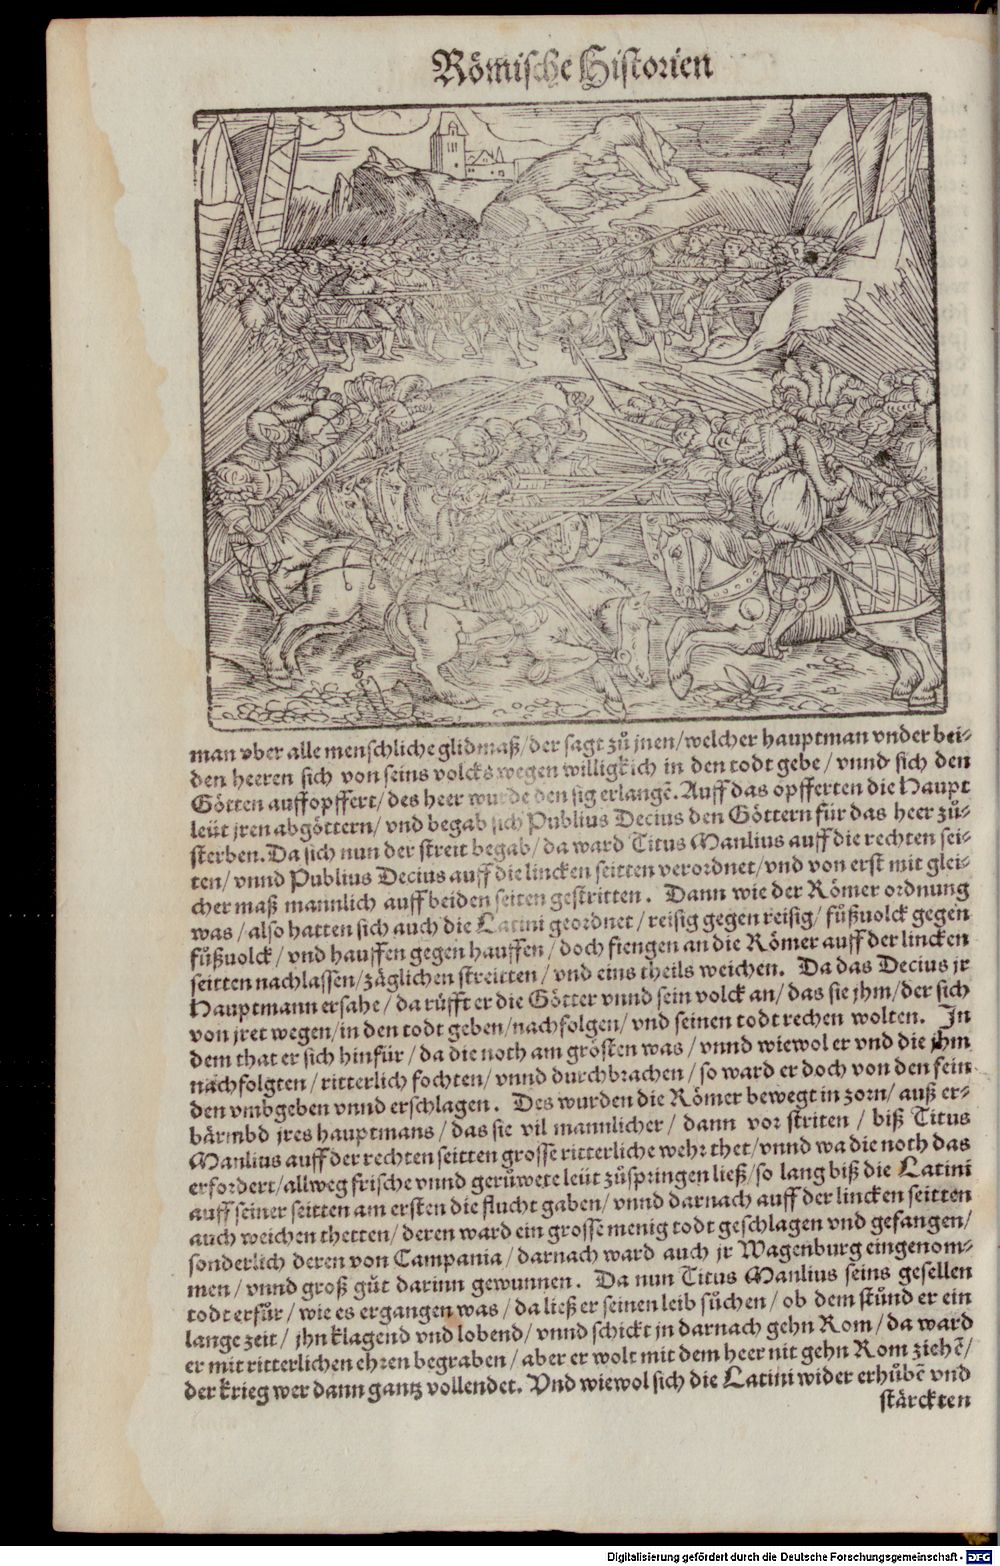 Römische Historien
man vber alle menschliche glidmaß/der sagt zů jnen/welcher hauptman vnder bei-
den heeren sich von seins volcks wegen willigkich in den todt gebe/vnnd sich den
Götten auffopffert/des heer wurde den sig erlangẽ. Auff das opfferten die Haupt
leüt jren abgöttern/vnd begab sich Publius Decius den Göttern für das heer zů-
sterben. Da sich nun der streit begab/da ward Titus Manlius auff die rechten sei-
ten/vnnd Publius Decius auff die lincken seitten verordnet/vnd von erst mit glei-
cher maß mannlich auff beiden seiten gestritten. Dann wie der Römer ordnung
was/also hatten sich auch die Latini geordnet/reisig gegen reisig/fůßuolck gegen
fůßuolck/vnd hauffen gegen hauffen/doch fiengen an die Römer auff der lincken
seitten nachlassen/zäglichen streitten/vnd eins theils weichen. Da das Decius jr
Hauptmann ersahe/da růfft er die Götter vnnd sein volck an/das sie jhm/der sich
von jret wegen/in den todt geben/nachfolgen/vnd seinen todt rechen wolten. In
dem that er sich hinfür/da die noth am grösten was/vnnd wiewol er vnd die jhm
nachfolgten/ritterlich fochten/vnnd durchbrachen/so ward er doch von den fein
den vmbgeben vnnd erschlagen. Des wurden die Römer bewegt in zorn/auß er-
bärmbd jres hauptmans/das sie vil mannlicher/dann vor striten/biß Titus
Manlius auff der rechten seitten grosse ritterliche wehr thet/vnnd wa die noth das
erfordert/allweg frische vnnd gerůwete leüt zůspringen ließ/so lang biß die Latini
auff seiner seitten am ersten die flucht gaben/vnnd darnach auff der lincken seitten
auch weichen thetten/deren ward ein grosse menig todt geschlagen vnd gefangen/
sonderlich deren von Campania/darnach ward auch jr Wagenburg eingenom-
men/vnnd groß gůt darinn gewunnen. Da nun Titus Manlius seins gesellen
todt erfůr/wie es ergangen was/da ließ er seinen leib sůchen/ob dem stůnd er ein
lange zeit/jhn klagend vnd lobend/vnnd schickt jn darnach gehn Rom/da ward
er mit ritterlichen ehren begraben/aber er wolt mit dem heer nit gehn Rom ziehẽ/
der krieg wer dann gantz vollendet. Vnd wiewol sich die Latini wider erhůbẽ vnd
stärckten
Digitalisierung gefördert durch die Deutsche Forschungsgemeinschaft - DFG